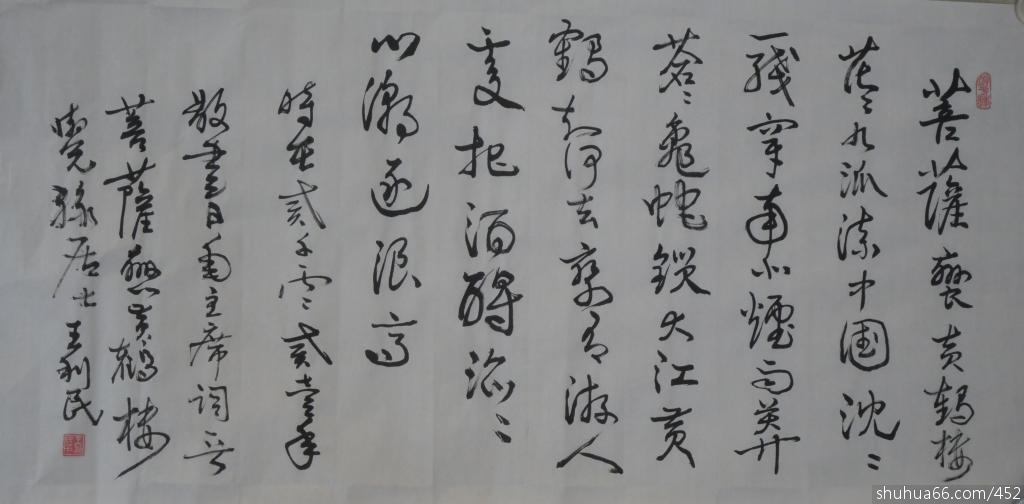 菩薩蠻黄鶴楼
茫々九派流中國沈々
一綫穿南北煙雨莽
苍々龜蛇鎖大江黄
鶴知何去剩有游人
處把酒酹滔々
心潮逐浪高
時在貳千零貳壹年
書毛主席詞
菩薩蠻黄鶴楼
居士王利民
shuhua66.com/452